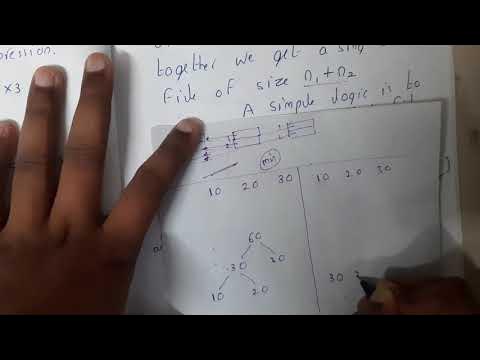 pression.
x3
together we get a
File of size n1+n2
A simple logic is to
min
10 20 30
10 20 30
60
30 20
10 20
30